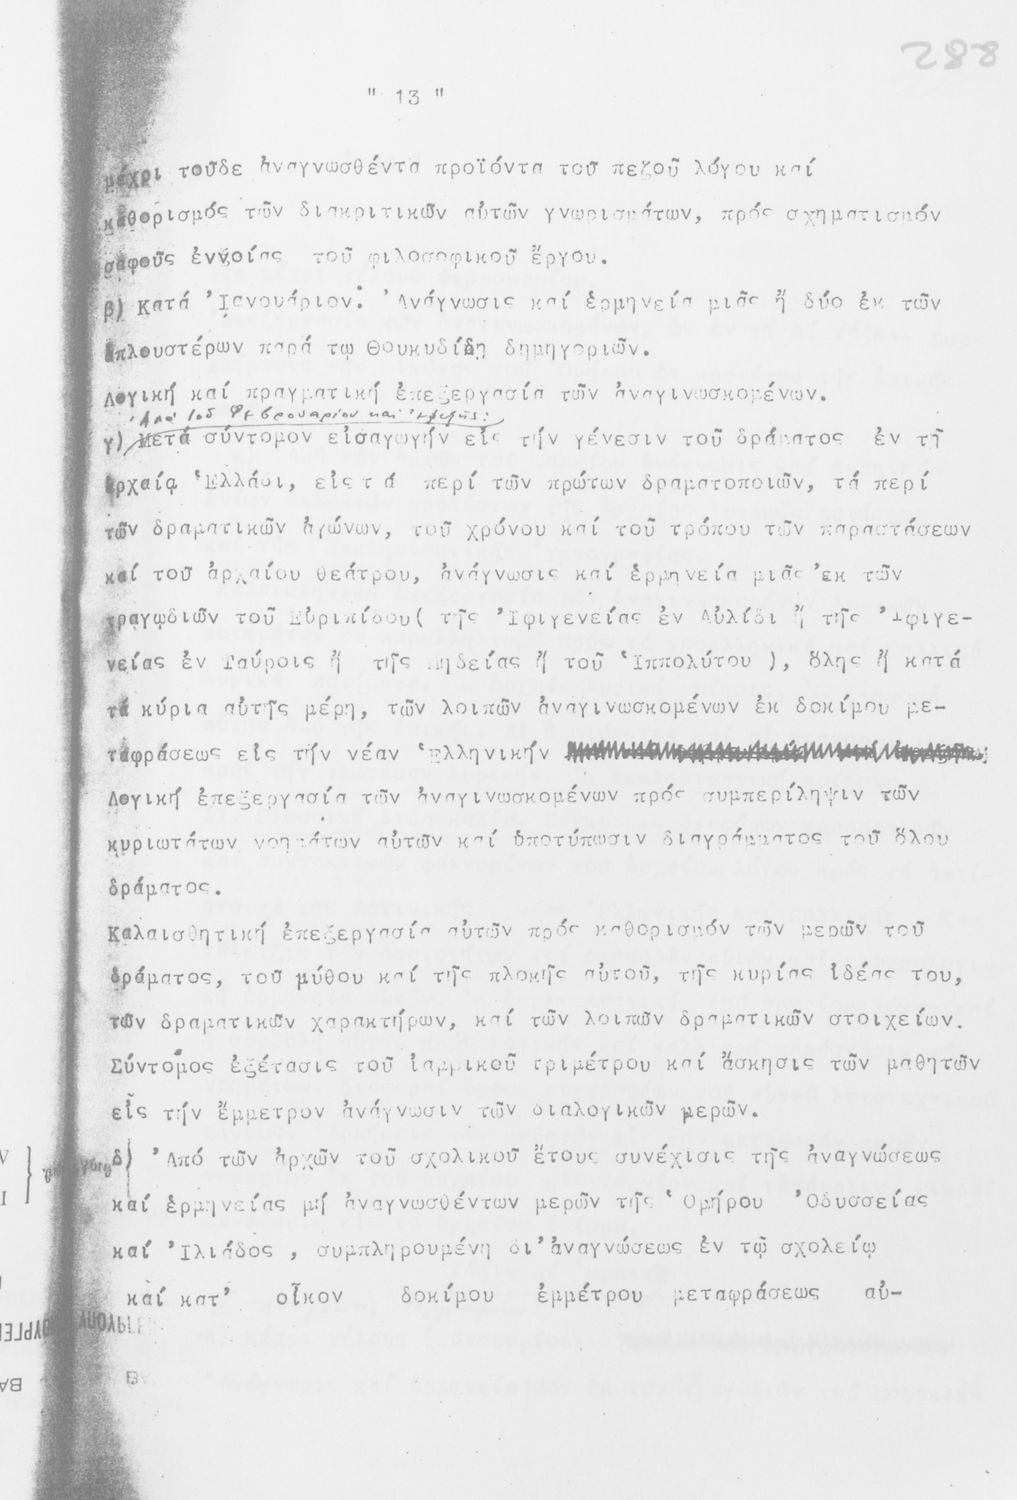 288
" 13 "
μέχρι τοῦδε ἀναγνωσθέντα προϊόντα τοῦ πεζοῦ λόγου καί
καθορισμός τῶν διακριτικῶν αὐτῶν γνωρισμάτων, πρός σχηματισμόν
σαφοῦς ἐννοίας τοῦ φιλοσοφικοῦ ἔργου.
β) Κατά Ἰανουάριον: Ἀνάγνωσις καί ἑρμηνεία μιᾶς ἤ δύο ἐκ τῶν
ἁπλουστέρων παρά τῳ Θουκυδίδῃ δημηγοριῶν.
Λογική καί πραγματική ἐπεξεργασία τῶν ἀναγινωσκομένων.
Ἀπό 1ου Φεβρουαρίου καί ἑφεξῆς:
γ) Μετά σύντομον εἰσαγωγήν εἰς τήν γένεσιν τοῦ δράματος ἐν τῇ
ἀρχαίᾳ Ἑλλάδι, εἰς τά περί τῶν πρώτων δραματοποιῶν, τά περί
τῶν δραματικῶν ἀγώνων, τοῦ χρόνου καί τοῦ τρόπου τῶν παραστάσεων
καί τοῦ ἀρχαίου θεάτρου, ἀνάγνωσις καί ἑρμηνεία μιᾶς ἐκ τῶν
τραγῳδιῶν τοῦ Εὐριπίδου( τῆς Ἰφιγενείας ἐν Αὐλίδι ἤ τῆς Ἰφιγε-
νείας ἐν Ταύροις ἤ τῆς Μηδείας ἤ τοῦ Ἱππολύτου ), ὅλης ἤ κατά
τά κύρια αὐτῆς μέρη, τῶν λοιπῶν ἀναγινωσκομένων ἐκ δοκίμου με-
ταφράσεως εἰς τήν νέαν Ἑλληνικήν
Λογική ἐπεξεργασία τῶν ἀναγινωσκομένων πρός συμπερίληψιν τῶν
κυριωτάτων νοημάτων αὐτῶν καί ὑποτύπωσιν διαγράμματος τοῦ ὅλου
δράματος.
Καλαισθητική ἐπεξεργασία αὐτῶν πρός καθορισμόν τῶν μερῶν τοῦ
δράματος, τοῦ μύθου καί τῆς πλοκῆς αὐτοῦ, τῆς κυρίας ἰδέας του,
τῶν δραματικῶν χαρακτήρων, καί τῶν λοιπῶν δραματικῶν στοιχείων.
Σύντομος ἐξέτασις τοῦ ἰαμβικοῦ τριμέτρου καί ἄσκησις τῶν μαθητῶν
εἰς τήν ἔμμετρον ἀνάγνωσιν τῶν διαλογικῶν μερῶν.
δ) Ἀπό τῶν ἀρχῶν τοῦ σχολικοῦ ἔτους συνέχισις τῆς ἀναγνώσεως
καί ἑρμηνείας μή ἀναγνωσθέντων μερῶν τῆς Ὁμήρου Ὀδυσσείας
καί Ἰλιάδος , συμπληρουμένη δι' ἀναγνώσεως ἐν τῷ σχολείῳ
καί κατ' οἶκον δοκίμου ἐμμέτρου μεταφράσεως αὐ-